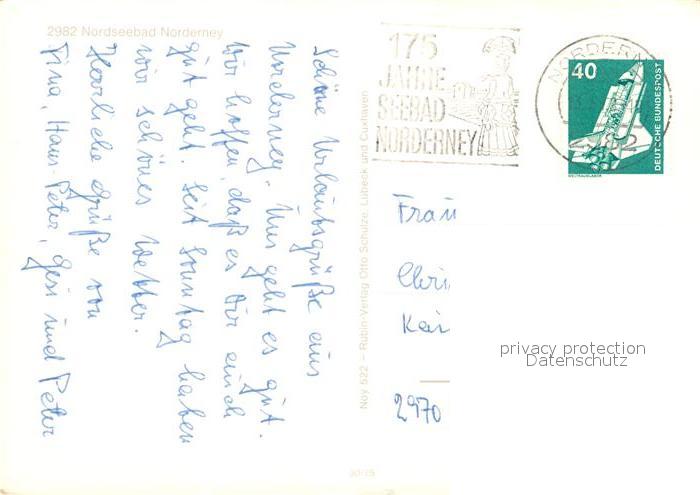 2982 Nordseebad Norderney
Schöne Urlaubsgrüße aus
Norderney. Uns geht es gut.
Wir hoffen, daß es Dir auch
gut geht. Seit Sonntag haben
wir schönes Wetter.
Herzliche Grüße von
Tina, Hans-Peter, Gesi und Peter
Noy 522 – Rubin-Verlag Otto Schulze, Lübeck und Cuxhaven
30/15
175
JAHRE
SEEBAD
NORDERNEY
NORDERN
2
40
DEUTSCHE BUNDESPOST
WELTRAUMLABOR
Frau
Chri
Kai
2970
privacy protection
Datenschutz